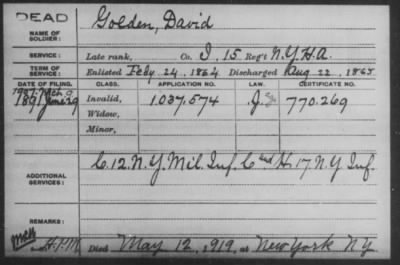 DEAD
NAME OF SOLDIER:
Golden, David
SERVICE:
Late rank, Co. I, 15 Reg't N.Y.H.A.
TERM OF SERVICE:
Enlisted Feby 24, 1864 Discharged Aug 22, 1865
DATE OF FILING. CLASS. APPLICATION NO. LAW. CERTIFICATE NO.
1891 June 29 Invalid, 1.037.574 J 770.269
Widow,
Minor,
ADDITIONAL SERVICES:
C. 12. N.Y. Mil. Inf. C and H. 17 N.Y. Inf.
REMARKS:
Died May 12, 1919, at New York N.Y.